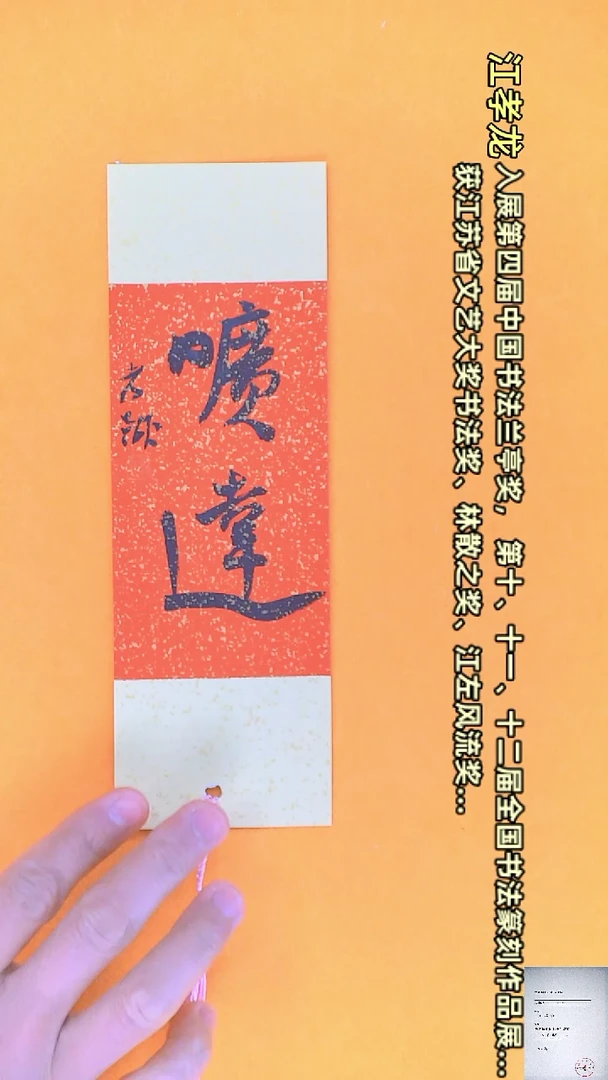 江孝龙 入展第四届中国书法兰亭奖，第十、十一、十二届全国书法篆刻作品展...
获江苏省文艺大奖书法奖、林散之奖、江左风流奖...
曠達